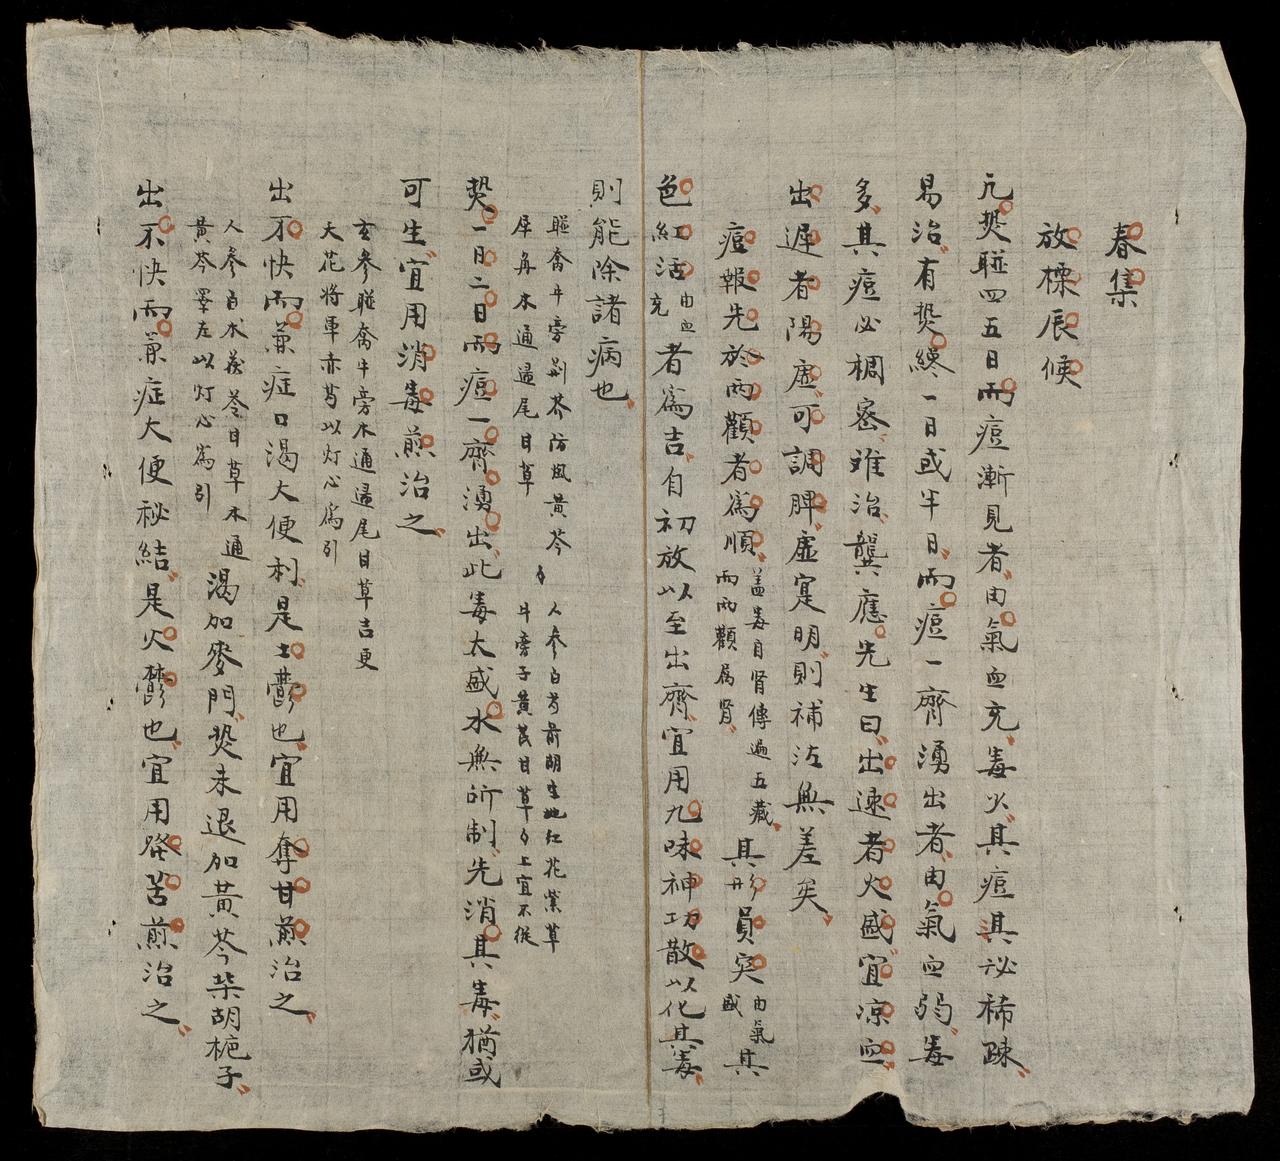 春集
放標辰候
凡𤍠聯四五日而痘漸見者由氣血充毒火其痘其必稀疎
易治有𤍠纔一日或半日而痘一齊湧出者由氣血弱毒
多其痘必稠密难治龔應先生曰出速者火盛宜凉血
出遲者陽虛可調脾虛寔明則補法無差矣
痘報先於兩顴者爲順盖毒自腎傳過五藏而兩顴属腎其形員突由氣盛其
色紅活由血充者爲吉自初放以至出齊宜用九味神功散以化其毒
則能除諸病也
聯喬牛旁荆芥防風黄芩 人參白芍前胡生地红花紫草
犀角木通歸尾甘草 牛旁子黄芪甘草
𤍠一日二日而痘一齊湧出此毒太盛水無所制先消其毒猶或
可生宜用消毒煎治之
玄參聯喬牛旁木通歸尾甘草吉更
天花将軍赤芍以灯心爲引
出不快而兼症口渴大便利是土鬱也宜用奪甘煎治之
人參白术茯苓甘草木通
黄芩澤左以灯心爲引渴加麥門𤍠未退加黄芩柴胡梔子
出不快而兼症大便秘結是火鬱也宜用發苦煎治之